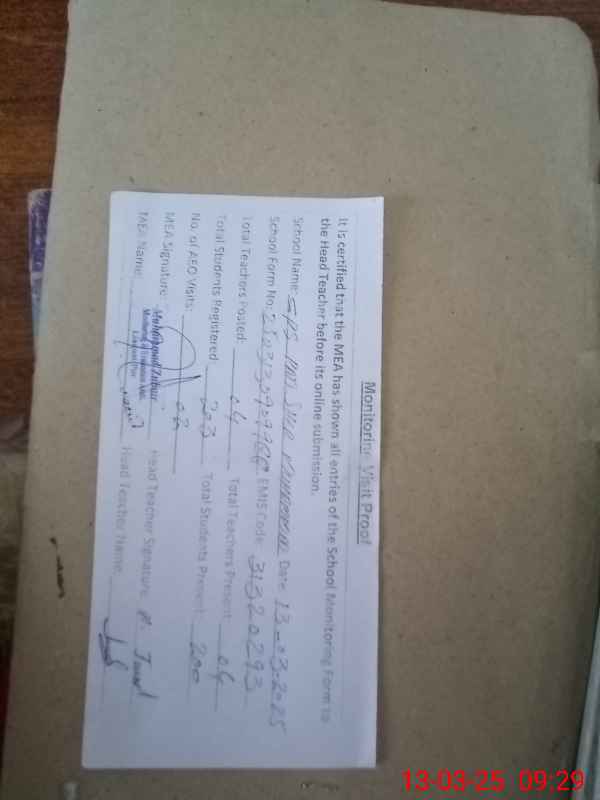 Monitoring Visit Proof
It is certified that the MEA has shown all entries of the School Monitoring Form to
the Head Teacher before its online submission.
School Name: GPS Date 13-03-2025
School Form No: EMIS Code: 31320293
Total Teachers Posted: 04 Total Teachers Present: 04
Total Students Registered: 203 Total Students Present: 200
No. of AEO Visits: 02
MEA Signature: Head Teacher Signature:
MEA Name: Head Teacher Name:
Muhammad
13-03-25 09:29